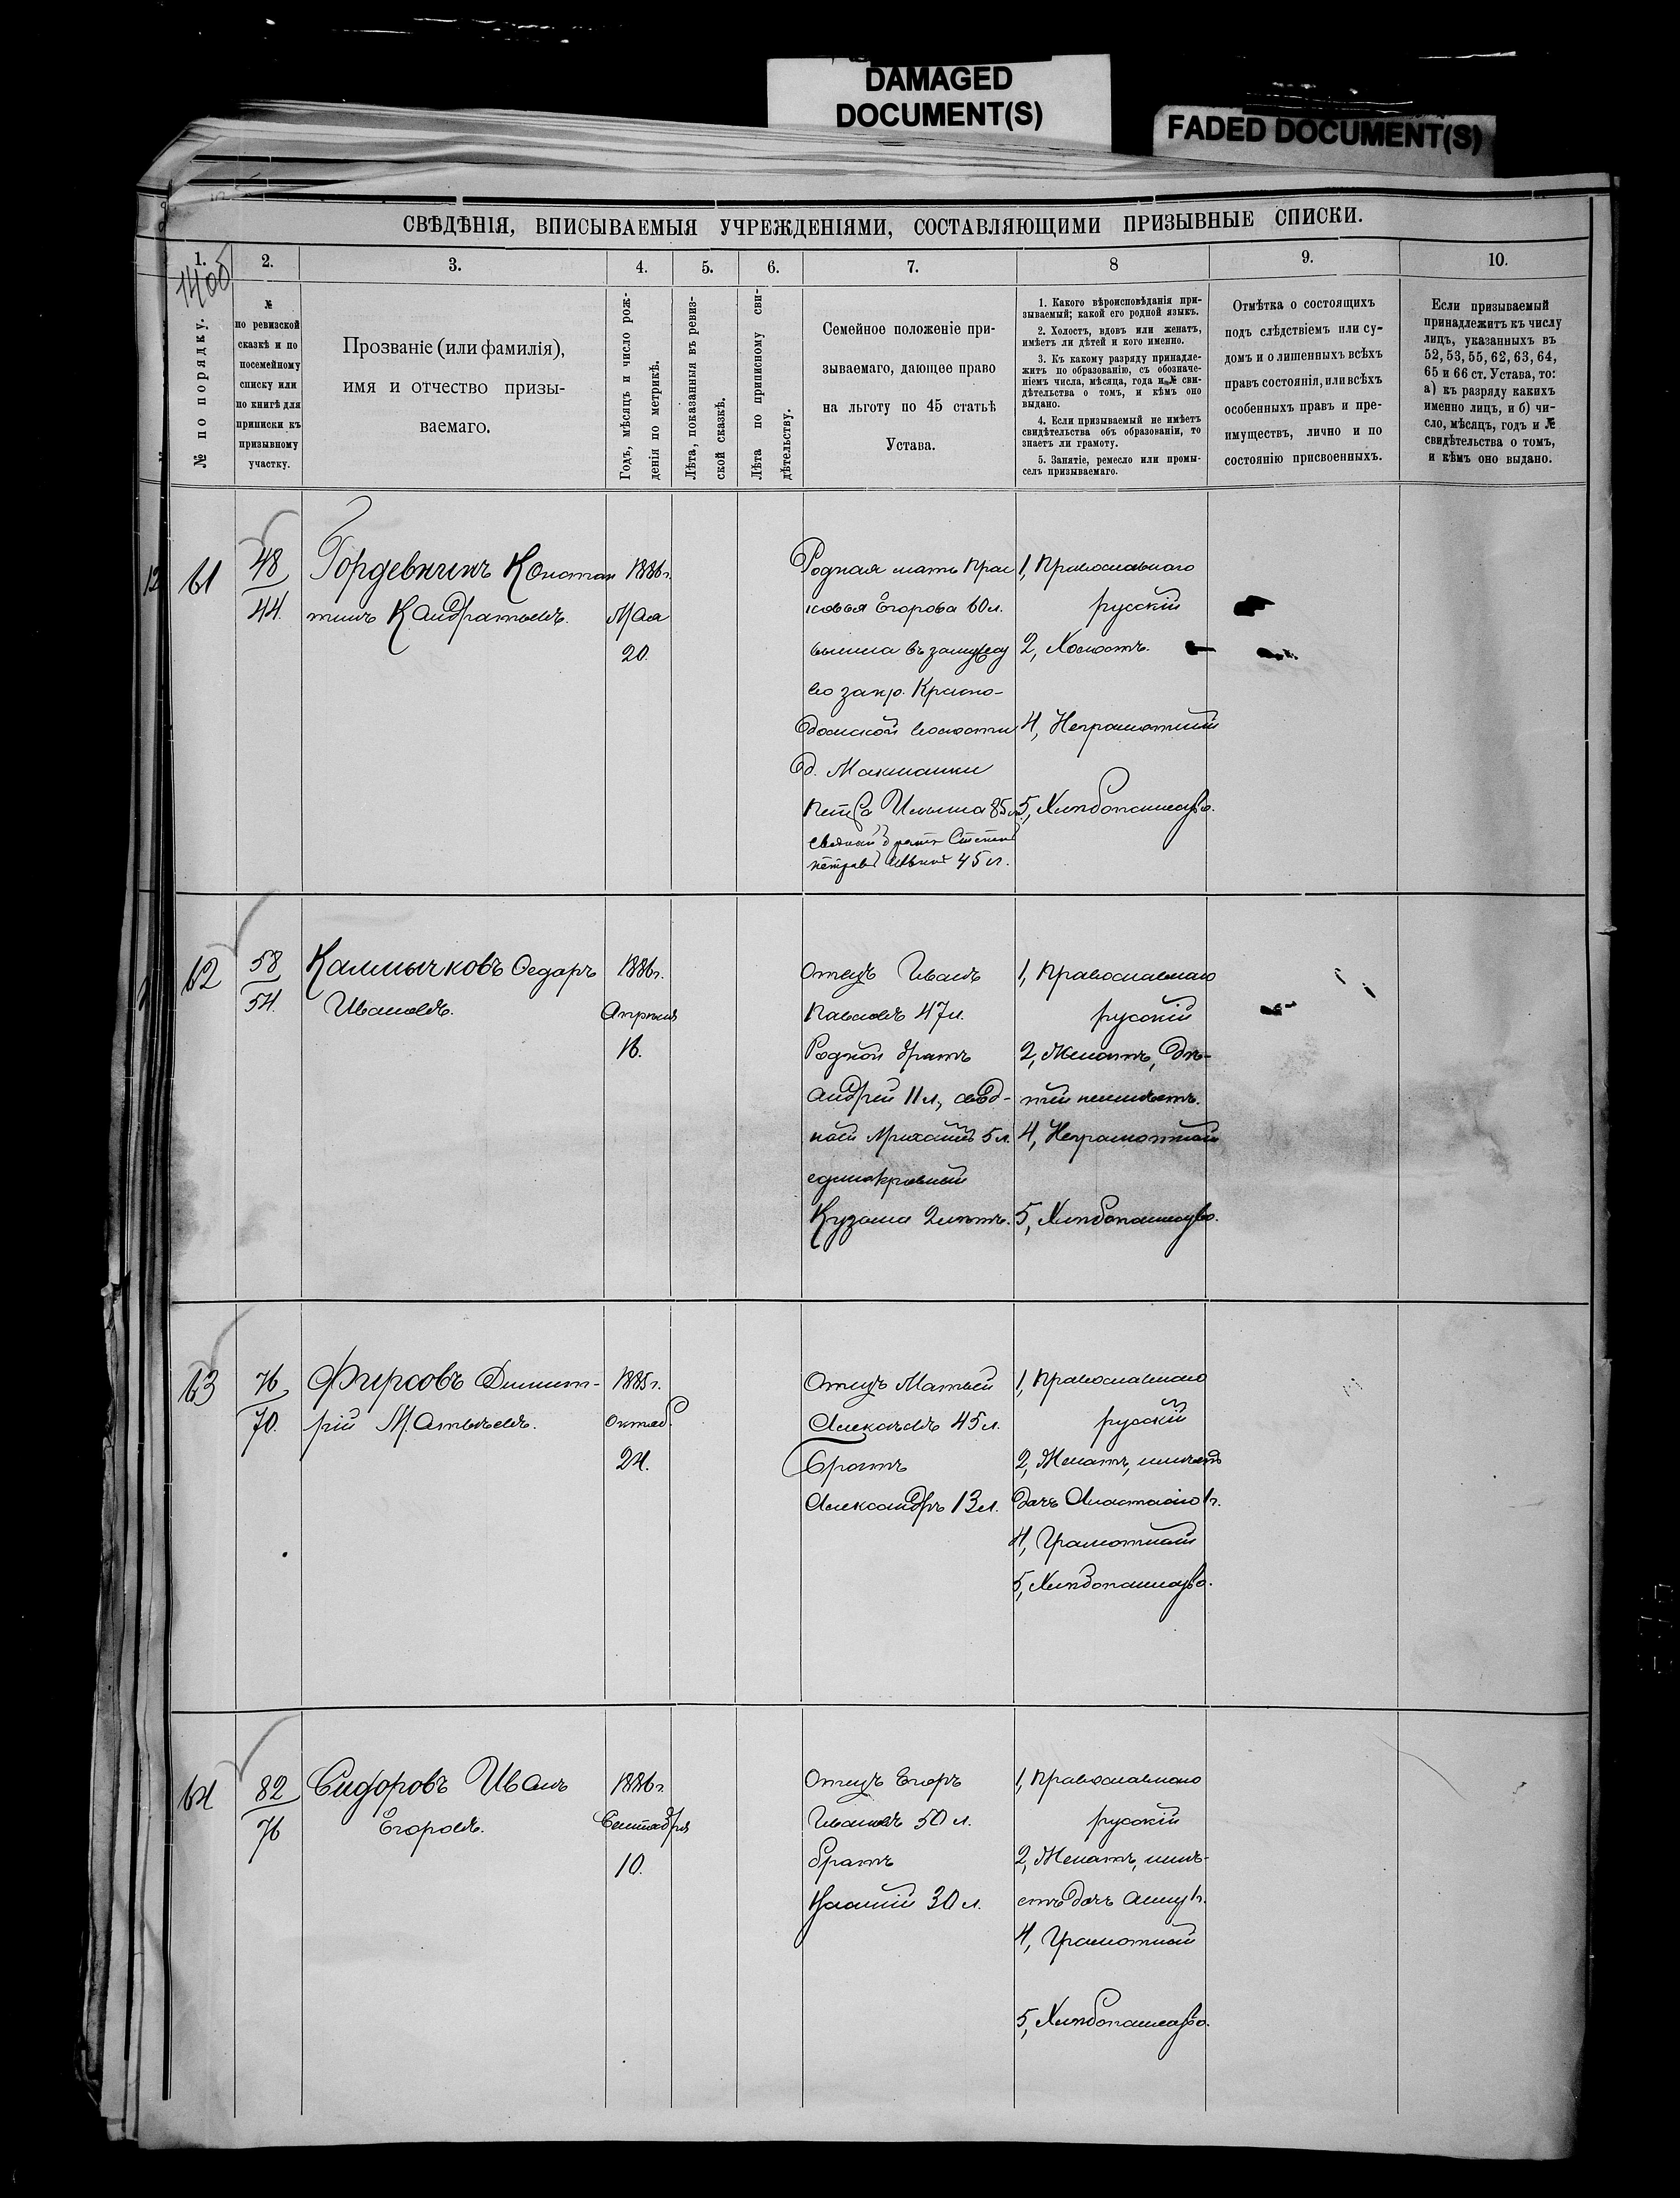 DAMAGED
DOCUMENT(S)
FADED DOCUMENT(S)
СВѢДѢНІЯ, ВПИСЫВАЕМЫЯ УЧРЕЖДЕНІЯМИ, СОСТАВЛЯЮЩИМИ ПРИЗЫВНЫЕ СПИСКИ.
1.
1400
2.
3.
4.
5.
6.
7.
8
9.
10.
№ по порядку.
№
по ревизской
сказкѣ и по
посемейному
списку или
по книгѣ для
приписки къ
призывному
участку.
Прозваніе (или фамилія),
имя и отчество призы-
ваемаго.
Годъ, мѣсяцъ и число рож-
денія по метрикѣ.
Лѣта, показанныя въ ревиз-
ской сказкѣ.
Лѣта по приписному сви-
дѣтельству.
Семейное положеніе при-
зываемаго, дающее право
на льготу по 45 статьѣ
Устава.
1. Какого вѣроисповѣданія при-
зываемый; какой его родной языкъ.
2. Холостъ, вдовъ или женатъ,
имѣетъ ли дѣтей и кого именно.
3. Къ какому разряду принадле-
житъ по образованію, съ обозначе-
ніемъ числа, мѣсяца, года и № сви-
дѣтельства о томъ, и кѣмъ оно
выдано.
4. Если призываемый не имѣетъ
свидѣтельства объ образованіи, то
знаетъ ли грамоту.
5. Занятіе, ремесло или промы-
селъ призываемаго.
Отмѣтка о состоящихъ
подъ слѣдствіемъ или су-
домъ и о лишенныхъ всѣхъ
правъ состоянія, или всѣхъ
особенныхъ правъ и пре-
имуществъ, лично и по
состоянію присвоенныхъ.
Если призываемый
принадлежитъ къ числу
лицъ, указанныхъ въ
52, 53, 55, 62, 63, 64,
65 и 66 ст. Устава, то:
а) къ разряду какихъ
именно лицъ, и б) чи-
сло, мѣсяцъ, годъ и №
свидѣтельства о томъ,
и кѣмъ оно выдано.
61
48
44.
Гордевнинъ Констан
тинъ Кандратьевъ.
1886 г.
Мая
20.
Родная мать Прас
ковья Егорова 60 л.
вышла въ
во
волости
д.
Петра Ильина 85 л.
братъ Степан
Петровъ Ильинъ 45 л.
1, Православнаго
русскій
2, Холостъ.
4, Неграмотный
5, Хлѣбопашество.
62
58
54.
Калмычковъ Ѳедоръ
Ивановъ.
1886 г.
Апрѣля
16.
Отецъ Иванъ
Павловъ 47 л.
Родной братъ
Андрей 11 л, свод-
ной Михаилъ 5 л.
единокровный
Кузьма 2 лѣтъ.
1, Православнаго
русскій
2, Женатъ, дѣ-
тей неимѣетъ.
4, Неграмотный
5, Хлѣбопашество.
63
76
70.
Фирсовъ Димит-
рій Матвѣевъ.
1885 г.
Октяб.
24.
Отецъ Матвѣй
Алексѣевъ 45 л.
Братъ
Александръ 13 л.
1, Православнаго
русскій
2, Женатъ, имѣетъ
дочь Анастасію 1 г.
4, Грамотный
5, Хлѣбопашество.
64
82
76
Сидоровъ Иванъ
Егоровъ.
1886 г.
Сентября
10.
Отецъ Егоръ
Ивановъ 50 л.
братъ
30 л.
1, Православнаго
русскій
2, Женатъ, имѣ-
етъ дочь Анну 1 г.
4, Грамотный
5, Хлѣбопашество.